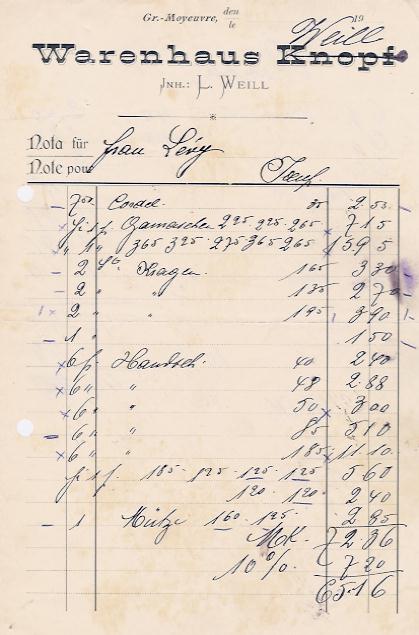 Gr.-Moyeuvre, den
le 19
Weill
Warenhaus Knopf
Jnh.: L. Weill
Nota für Frau Lévy
Note pour
7 35 2 50
Gamaschen 225 225 265 7 15
1 365 325 275 365 265 15 95
2 Kragen 165 3 30
2 " 135 2 70
2 " 195 3 90
1 " 1 50
6 p. Handsch. 40 2 40
6 " " 48 2 88
6 " " 50 3 00
6 " " 85 5 10
6 " " 185 11 10
185 125 125 125 5 60
120 120 2 40
1 Mütze 160 125 2 85
MK. 72 36
10 % 7 20
65 16